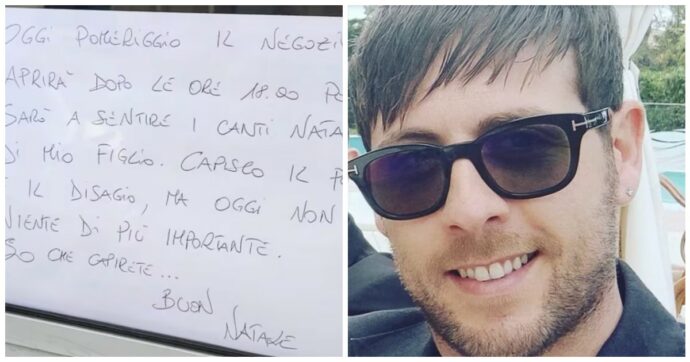 OGGI POMERIGGIO IL NEGOZI
APRIRÀ DOPO LE ORE 18.00 PE
SARÒ A SENTIRE I CANTI NATA
DI MIO FIGLIO. CAPISCO IL P
E IL DISAGIO, MA OGGI NON
NIENTE DI PIÙ IMPORTANTE.
SO CHE CAPIRETE...
BUON
NATALE